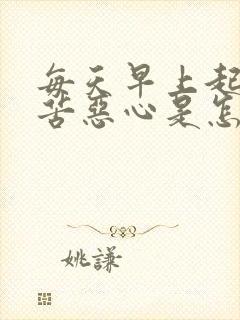 每天早上起
苦恶心是怎
姚谦